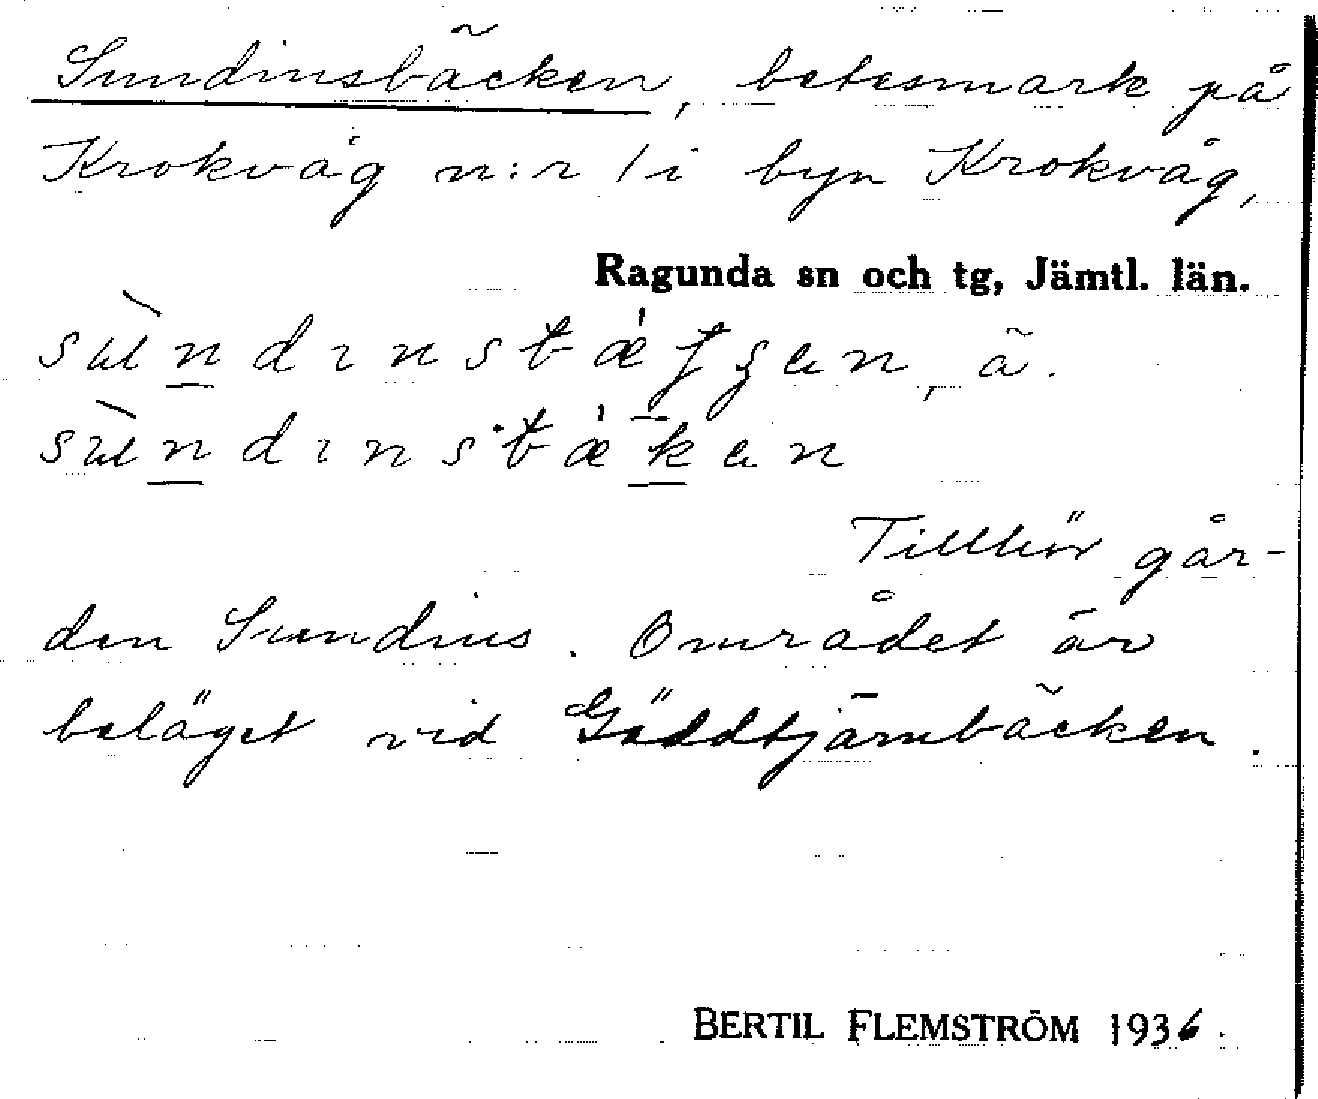 Sundinsbäcken, betesmark på
Krokvåg n:r 1 i byn Krokvåg,
Ragunda sn och tg, Jämtl. län.
ä.
Tillhör går-
den Sundins. Området är
beläget vid Gäddtjärnbäcken.
BERTIL FLEMSTRÖM 1936.